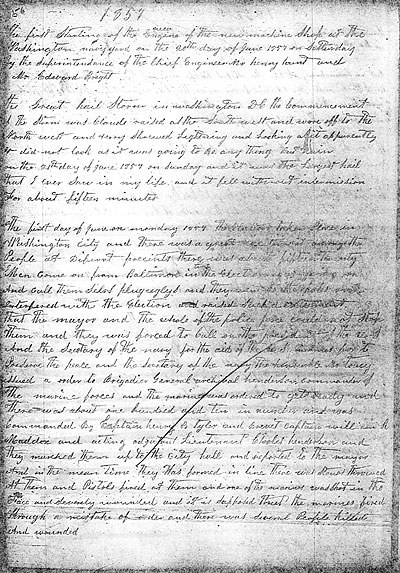 56
1857
The first Starting of the Engine of the new machine Shop at the
Washington navy yard on the 20th day of June 1857 on Satturday
by the Superintendance of the Chief Engineer Mr henry hunt and
Mr Edward
the Great hail Storm in washington DC the Commencement
of the Storm was Clouds raised at the South west and wore off to the
North west and very Sharp Lightning and Looking at it apparently
it did not look as it was going to be any thing but Rain
on the 21st day of June 1857 on Sunday and it was the Largest hail
that I ever Saw in my life, and it fell without intermission
for about fifteen minutes
The first day of June on monday 1857 the Election taken place in
Washington City and there was a great among the
People at Different precincts there was about fifteen or
Men Come on from Baltimore in the
And Call them Selves pluguglys and they
interfered with the Election and raised Such excitement
that the mayor and the whole of the police force Could not Stop
them and they was forced to Call on the president of the
And the Secetary of the navy for the aid of the U.S. marines for to
preserve the peace and the Secetary of the navy the honorable Mr Toucey
issued a order to Brigadier General archibal henderson commander of
The marine forces and the marines was ordered to get ready and
there was about one hundred and ten in number and was
Commanded by Captain henry B Tyler and brevet captain william
Maddox and acting adjutant Lieutennant Charles henderson and
they marched them up to the City hall and reported to the mayor
And in the mean time they was formed in line there was Stones throwed
At them and Pistols fired at them and one of the marines was Shot in the
Face and severely wounded and it is supposed that the marines fired
through a mistake of order and there was several People killed
And wounded